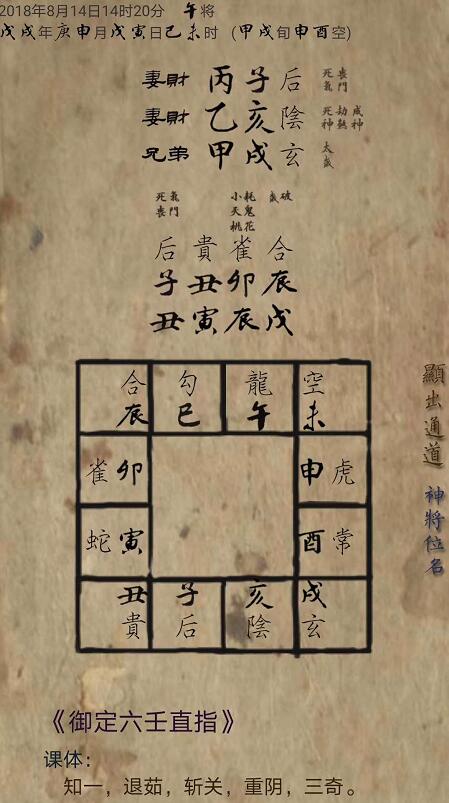 2018年8月14日14时20分 午将
戊戌年庚申月戊寅日己未时 (甲戌旬申酉空)
妻財 丙子后 死氣 喪門
妻財 乙亥陰 死神 劫煞 成神
兄弟 甲戌玄 太歲
死氣 喪門 小耗 天鬼 桃花 歲破
后貴雀合
子丑卯辰
丑寅辰戊
合 勾 龍 空
辰 巳 午 未
雀卯 申虎
蛇寅 酉常
丑 子 亥 戌
貴 后 陰 玄
顯出通道 神將位名
《御定六壬直指》
课体:
知一,退茹,斩关,重阴,三奇。